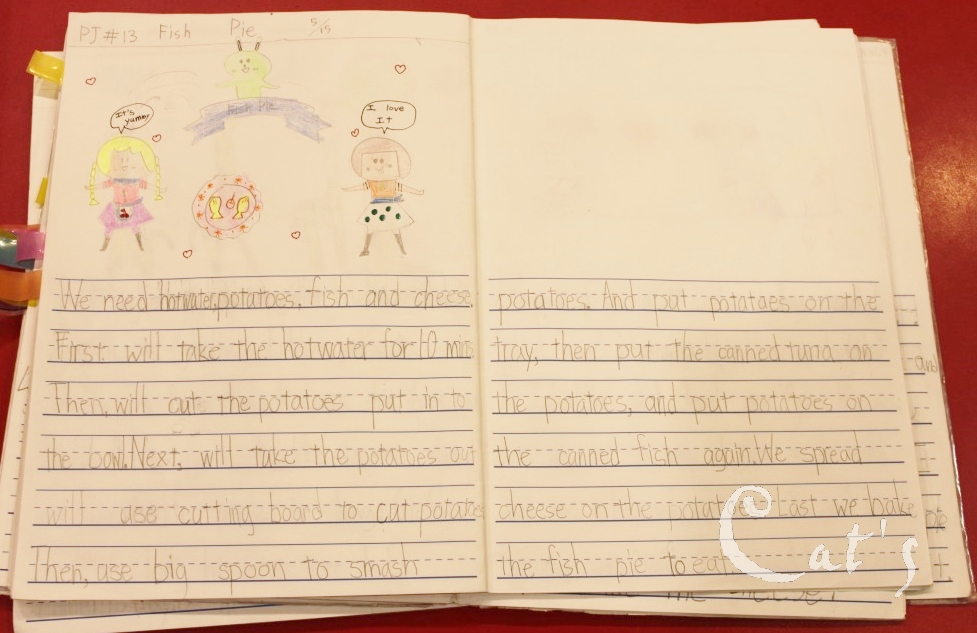 PJ#13 Fish Pie 5/15
It's yummy
I love It
Fish Pie
We need hotwater, potatoes, fish and cheese.
First. will take the hotwater for 10 mins
Then, will cut the potatoes put in to
the bowl. Next, will take the potatoes out
will use cutting board to cut potatoes
Then, use big spoon to smash
potatoes. And put potatoes on the
tray, then put the canned tuna on
the potatoes, and put potatoes on
the canned fich again. We spread
cheese on the potatoes. Last we bake
the fish pie to eat.
and
Cat's